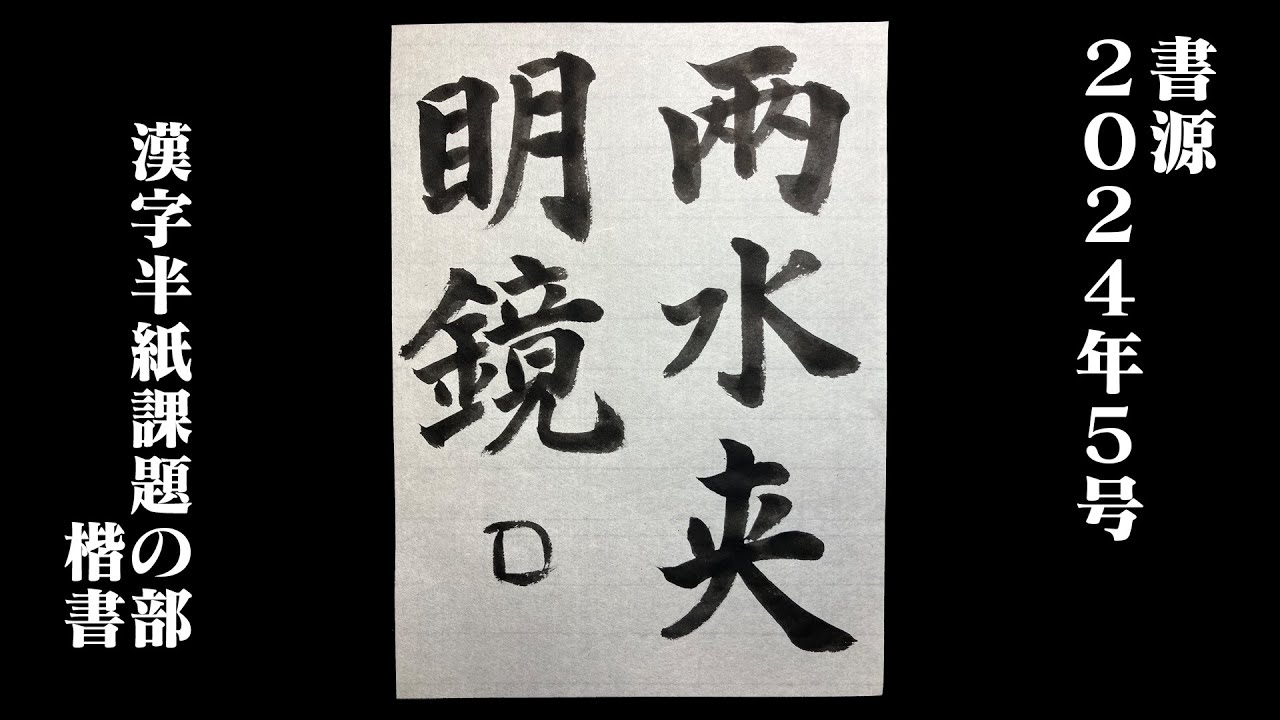 書源
2024年5号
兩水夹
眀鏡
漢字半紙課題の部
楷書